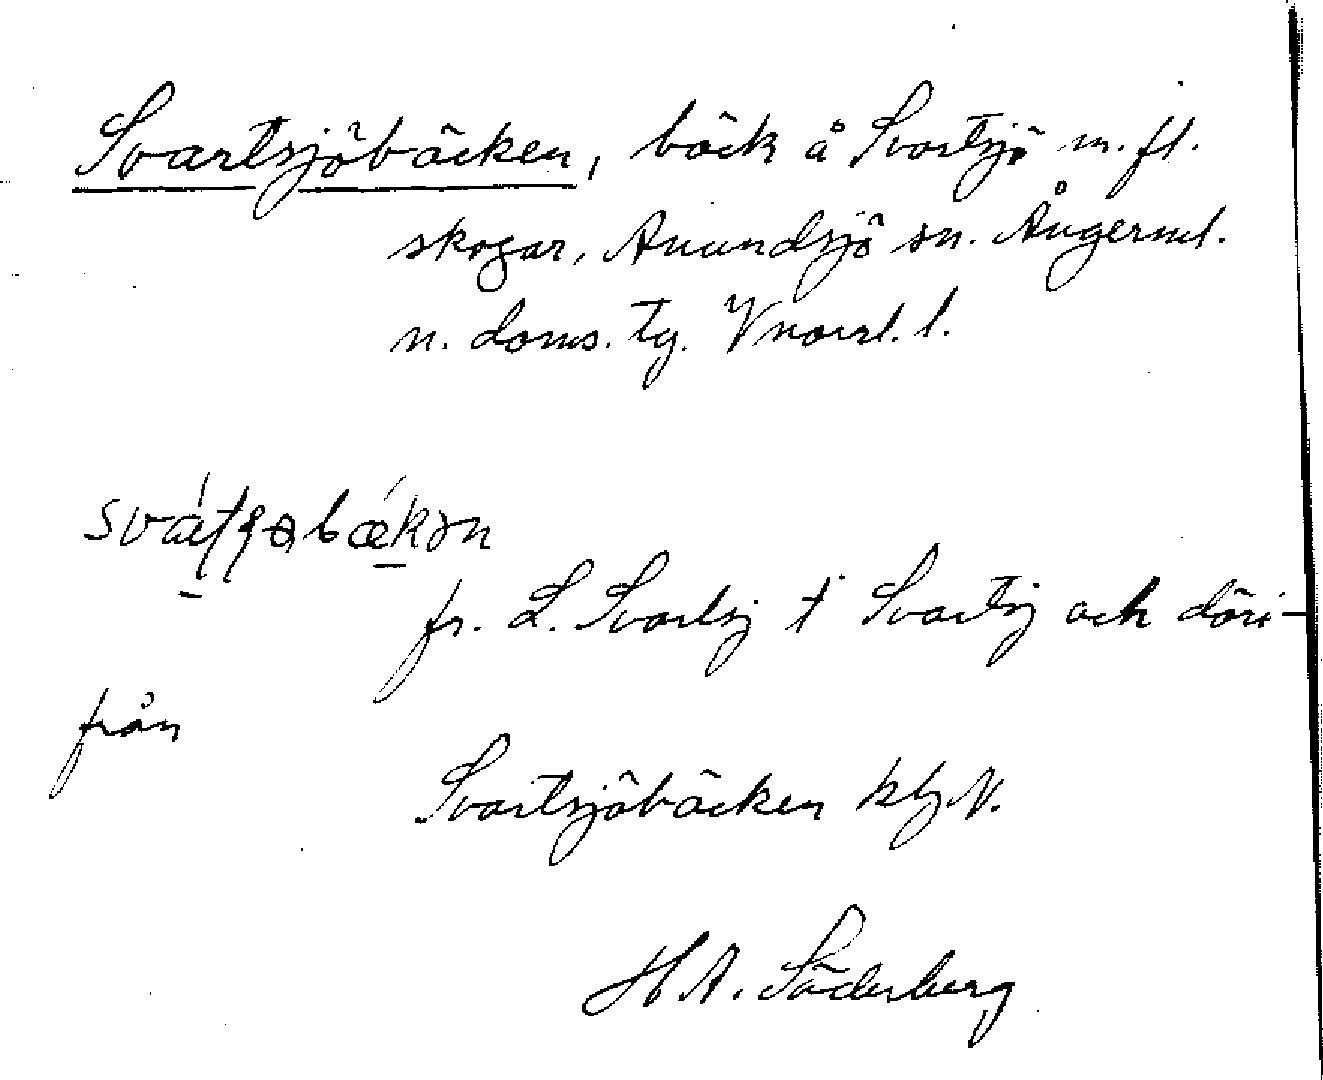 Svartsjöbäcken, bäck å Svartsjö m.fl.
skogar, Anundsjö sn. Ångerml.
n. doms. tg. Vnorrl. l.
fr. L. Svartsj t Svartsj och däri-
från
Svartsjöbäcken kbl N.
H A. Söderberg